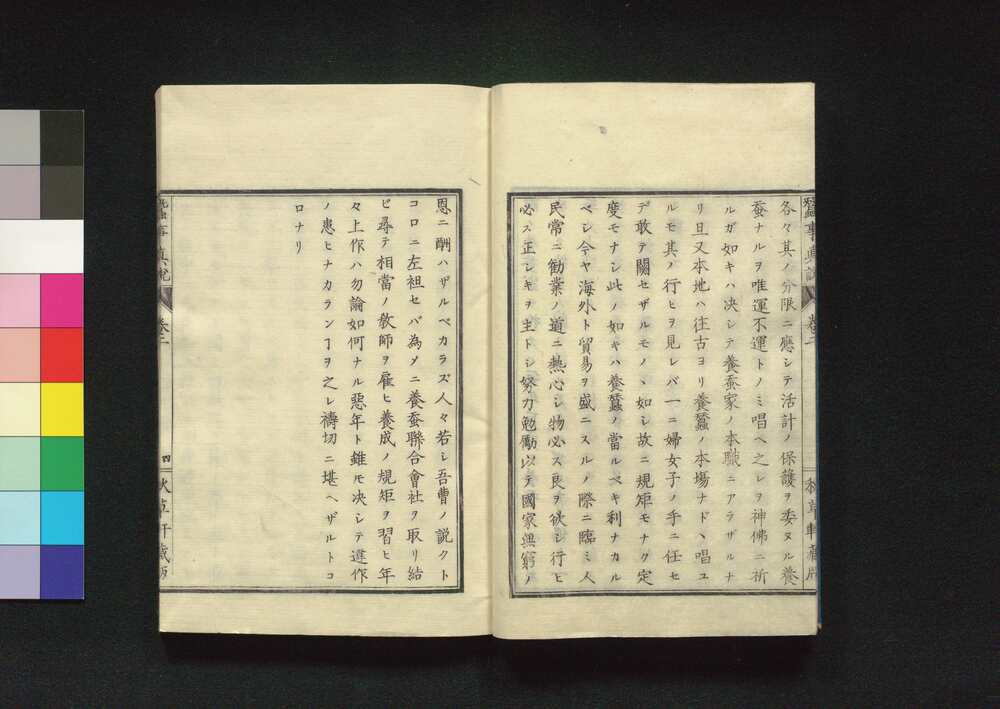 蠶事眞説
卷二
秋草軒藏版
各々其ノ分限ニ應シテ活計ノ保護ヲ委ヌル養
蚕ナルヲ唯運不運トノミ唱ヘ之レヲ神佛ニ祈
ルガ如キハ决シテ養蚕家ノ本職ニアラザルナ
リ且又本地ハ往古ヨリ養蠶ノ本塲ナドヽ唱ユ
ルモ其ノ行ヒヲ見レバ一ニ婦女子ノ手ニ任セ
デ敢テ關セザルモノヽ如シ故ニ規矩モナク定
度モナシ此ノ如キハ養蠶ノ當ルベキ利ナカル
ベシ今ヤ海外ト貿易ヲ盛ニスルノ際ニ臨ミ人
民常ニ勧業ノ道ニ熱心シ物必ス良ヲ欲シ行ヒ
必ス正シキヲ主トシ努力勉勵以テ國家無窮ノ
恩ニ酬ハザルベカラズ人々若シ吾曹ノ説クト
コロニ左袒セバ為メニ養蚕聯合會社ヲ取リ結
ビ尋テ相當ノ教師ヲ雇ヒ養成ノ規矩ヲ習ヒ年
々上作ハ勿論如何ナル惡年ト雖モ决シテ違作
ノ患ヒナカランヿヲ之レ禱切ニ堪ヘザルトコ
ロナリ
蠶事眞説
卷二
四
秋草軒藏版